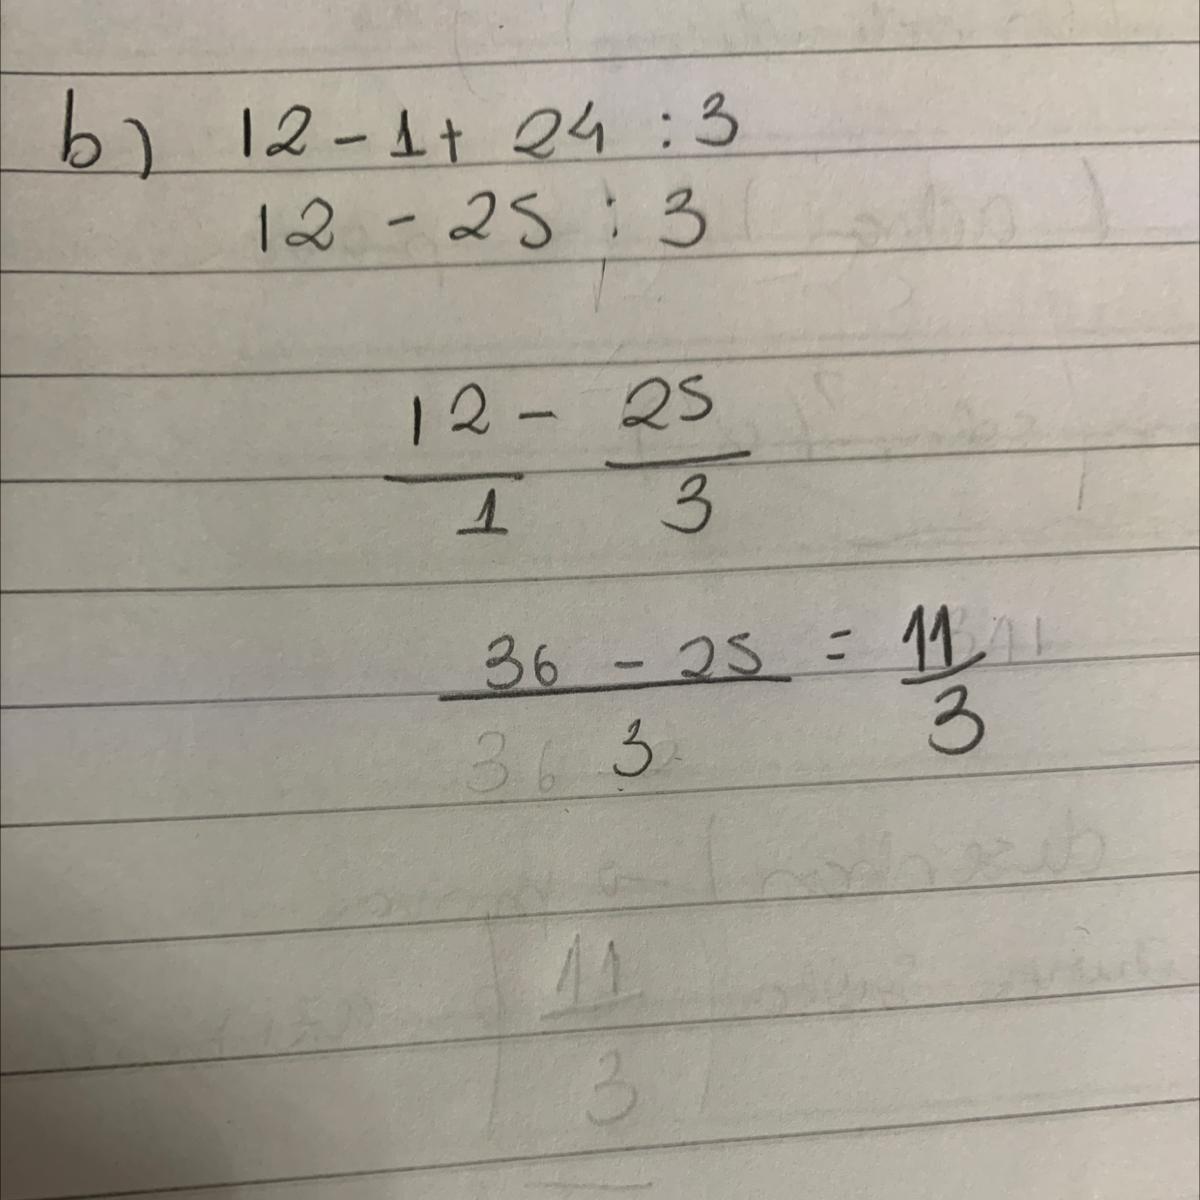 b) 12 - 1 + 24 : 3
12 - 25 : 3
12 - 25
1 3
36 - 25 = 11
3 3
36
11
3